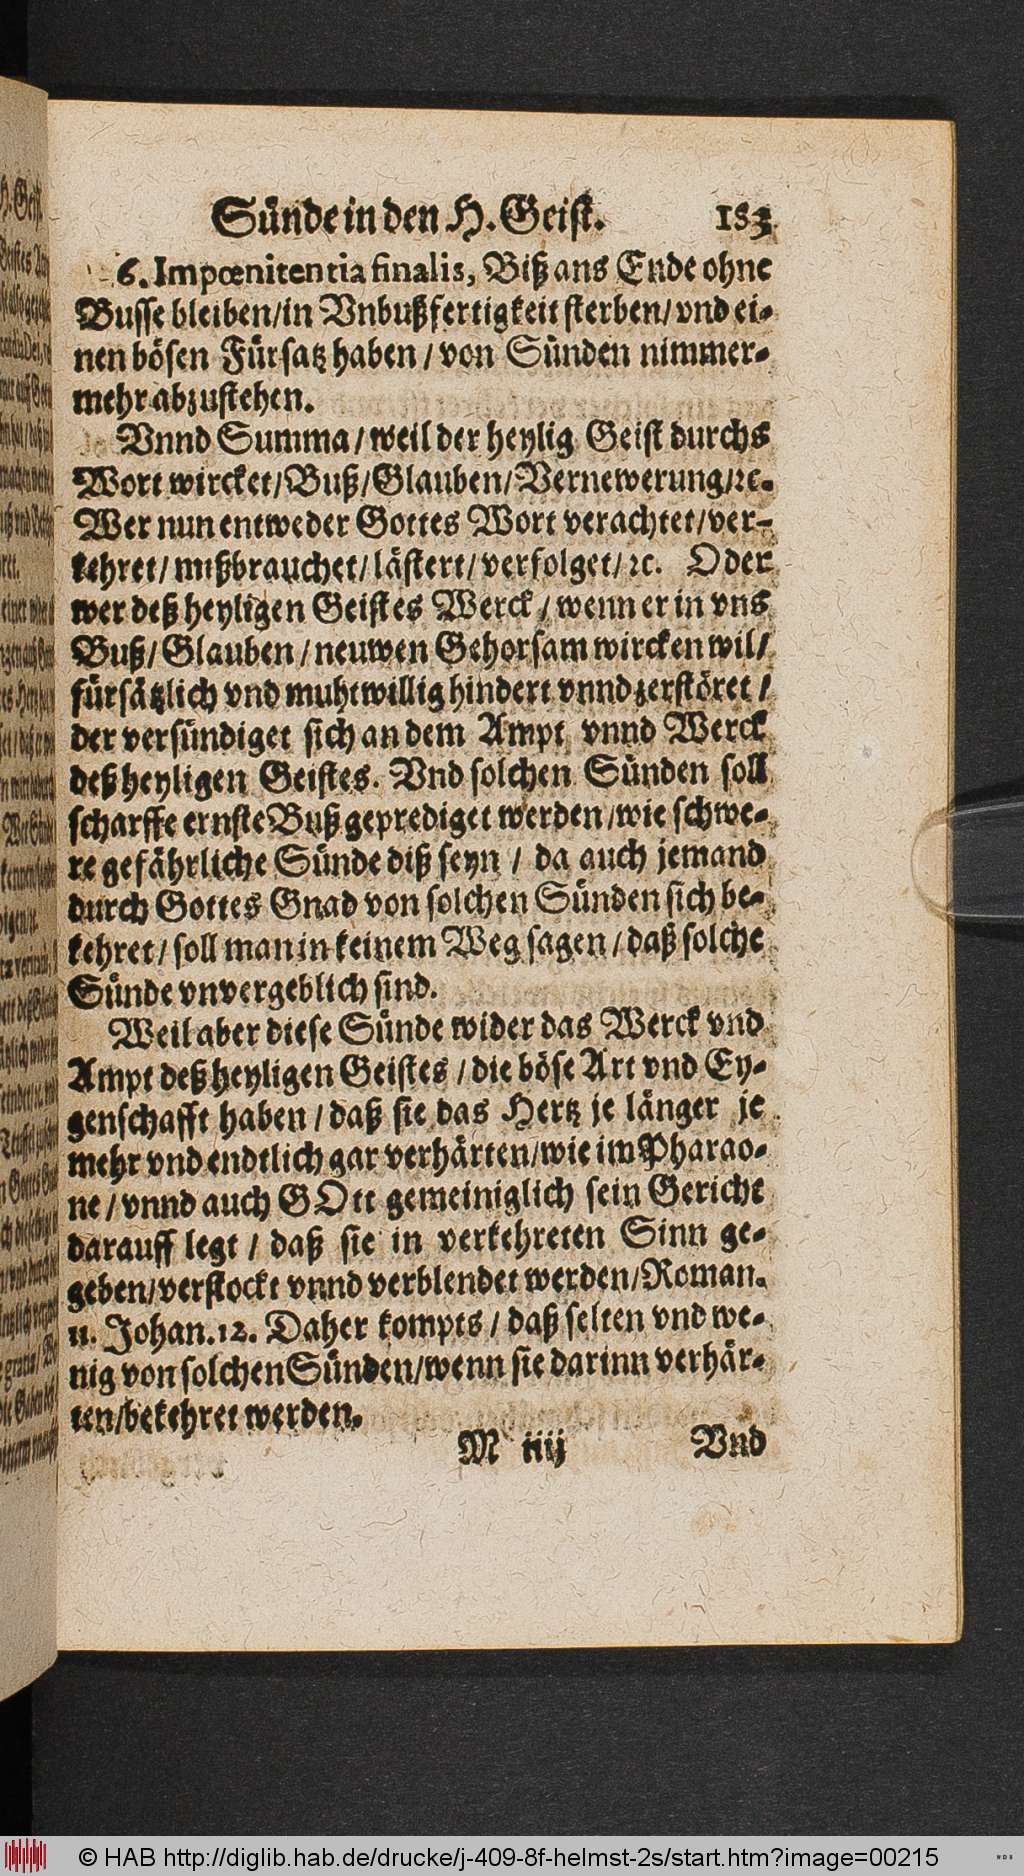 Sünde in den H. Geist. 183
6. Impœnitentia finalis, Biß ans Ende ohne
Busse bleiben/in Vnbußfertigkeit sterben/ vnd ei-
nen bösen Fürsatz haben / von Sünden nimmer-
mehr abzustehen.
Vnnd Summa / weil der heylig Geist durchs
Wort wircket/ Buß/ Glauben/ Vernewerung/ꝛc.
Wer nun entweder Gottes Wort verachtet/ ver-
kehret/ mißbrauchet/ lästert/ verfolget/ ꝛc. Oder
wer deß heyligen Geistes Werck / wenn er in vns
Buß/ Glauben / neuwen Gehorsam wircken wil/
fürsätzlich vnd muhtwillig hindert vnnd zerstöret /
der versündiget sich an dem Ampt vnnd Werck
deß heyligen Geistes. Vnd solchen Sünden soll
scharffe ernste Buß geprediget werden /wie schwe-
re gefährliche Sünde diß seyn / da auch jemand
durch Gottes Gnad von solchen Sünden sich be-
kehret/ soll man in keinem Weg sagen / daß solche
Sünde vnvergeblich sind.
Weil aber diese Sünde wider das Werck vnd
Ampt deß heyligen Geistes / die böse Art vnd Ey-
genschafft haben / daß sie das Hertz je länger je
mehr vnd endtlich gar verhärten/wie im Pharao-
ne / vnnd auch GOtt gemeiniglich sein Gericht
darauff legt / daß sie in verkehreten Sinn ge-
geben/verstockt vnnd verblendet werden/Roman.
11. Johan. 12. Daher kompts / daß selten vnd we-
nig von solchen Sünden/wenn sie darinn verhär-
ten/bekehret werden.
M iiij Vnd
© HAB http://diglib.hab.de/drucke/j-409-8f-helmst-2s/start.htm?image=00215